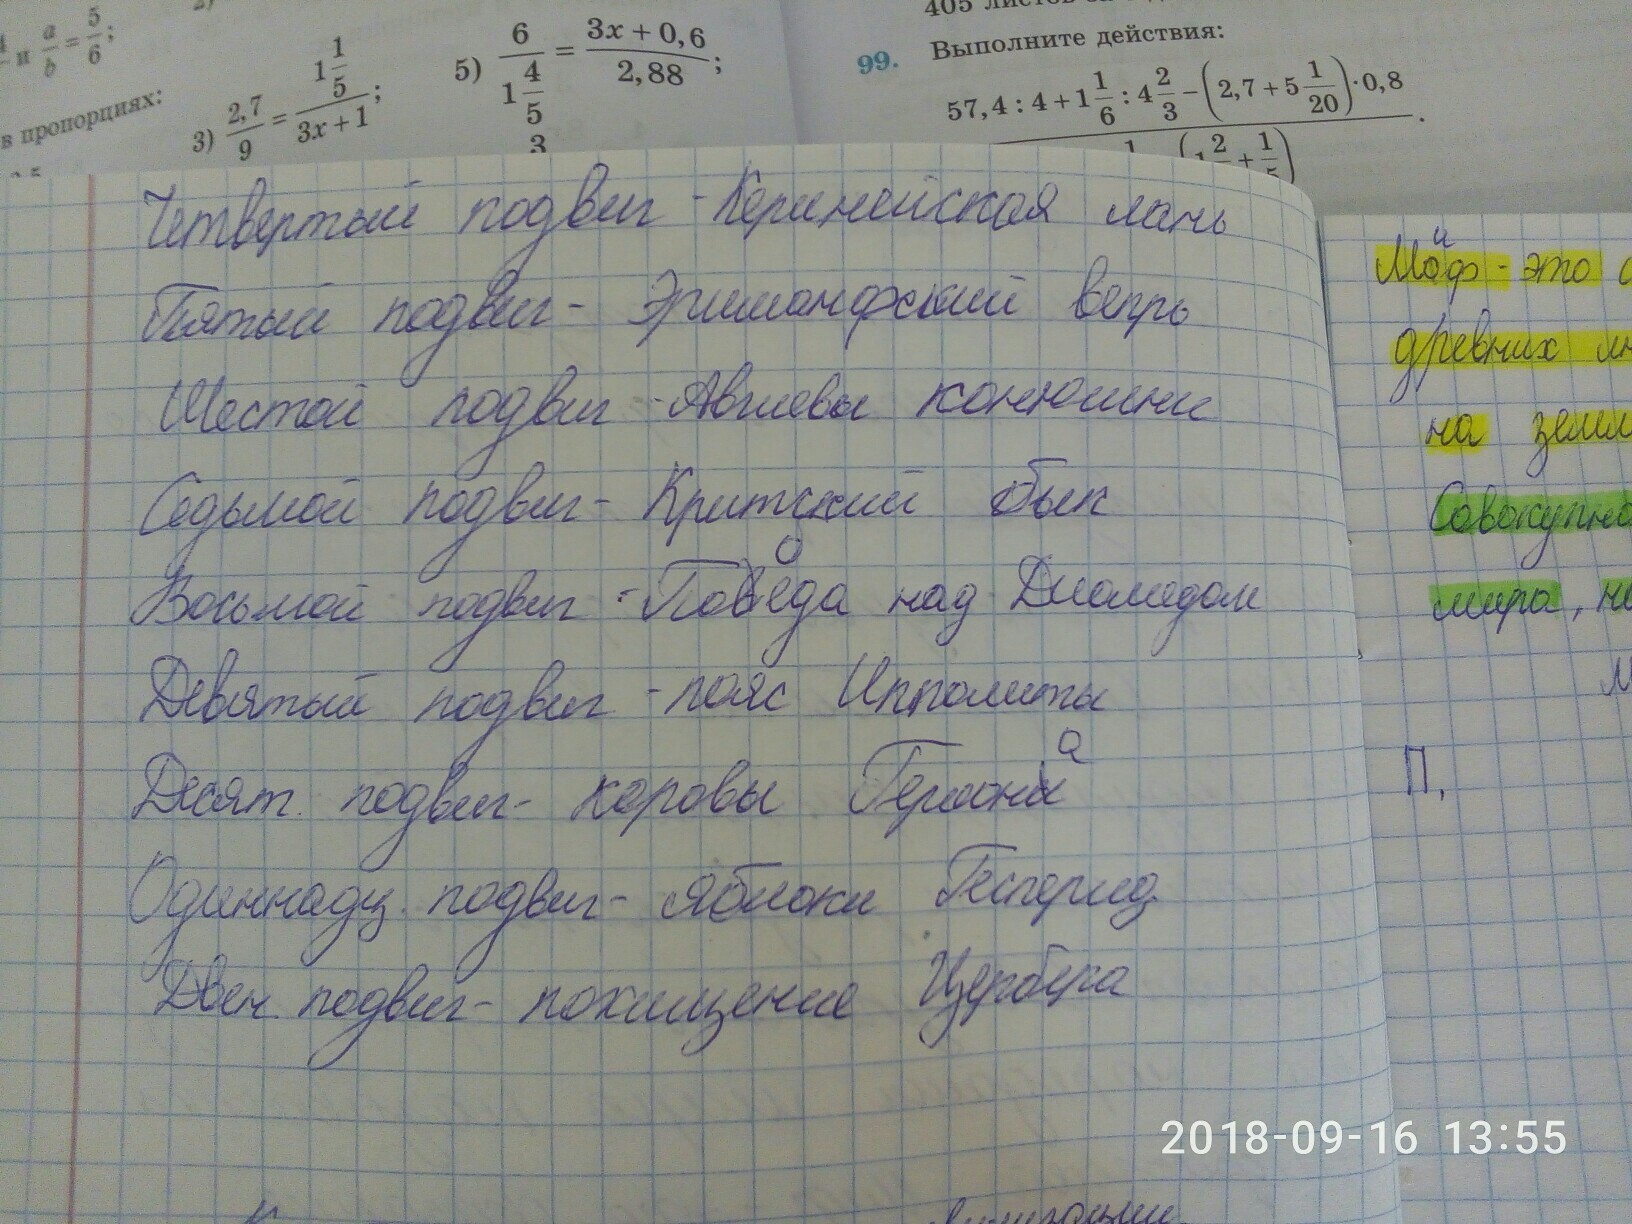 a/b = 5/6;
в пропорциях:
3) 2,7/9 = 1 1/5/(3x + 1);
5) 6/(1 4/5) = (3x + 0,6)/2,88;
3
99. Выполните действия:
57,4 : 4 + 1 1/6 : 4 2/3 − (2,7 + 5 1/20) · 0,8
Четвертый подвиг - Керинейская лань
Пятый подвиг - Эримонфский вепрь
Шестой подвиг - Авгиевы конюшни
Седьмой подвиг - Критский бык
Восьмой подвиг - Победа над Диомедом
Девятый подвиг - пояс Ипполиты
Десят. подвиг - коровы Гериона
Одиннадц. подвиг - яблоки Гесперид
Двен. подвиг - похищение Цербера
Миф - это
древних
на
мира,
П,
2018-09-16 13:55